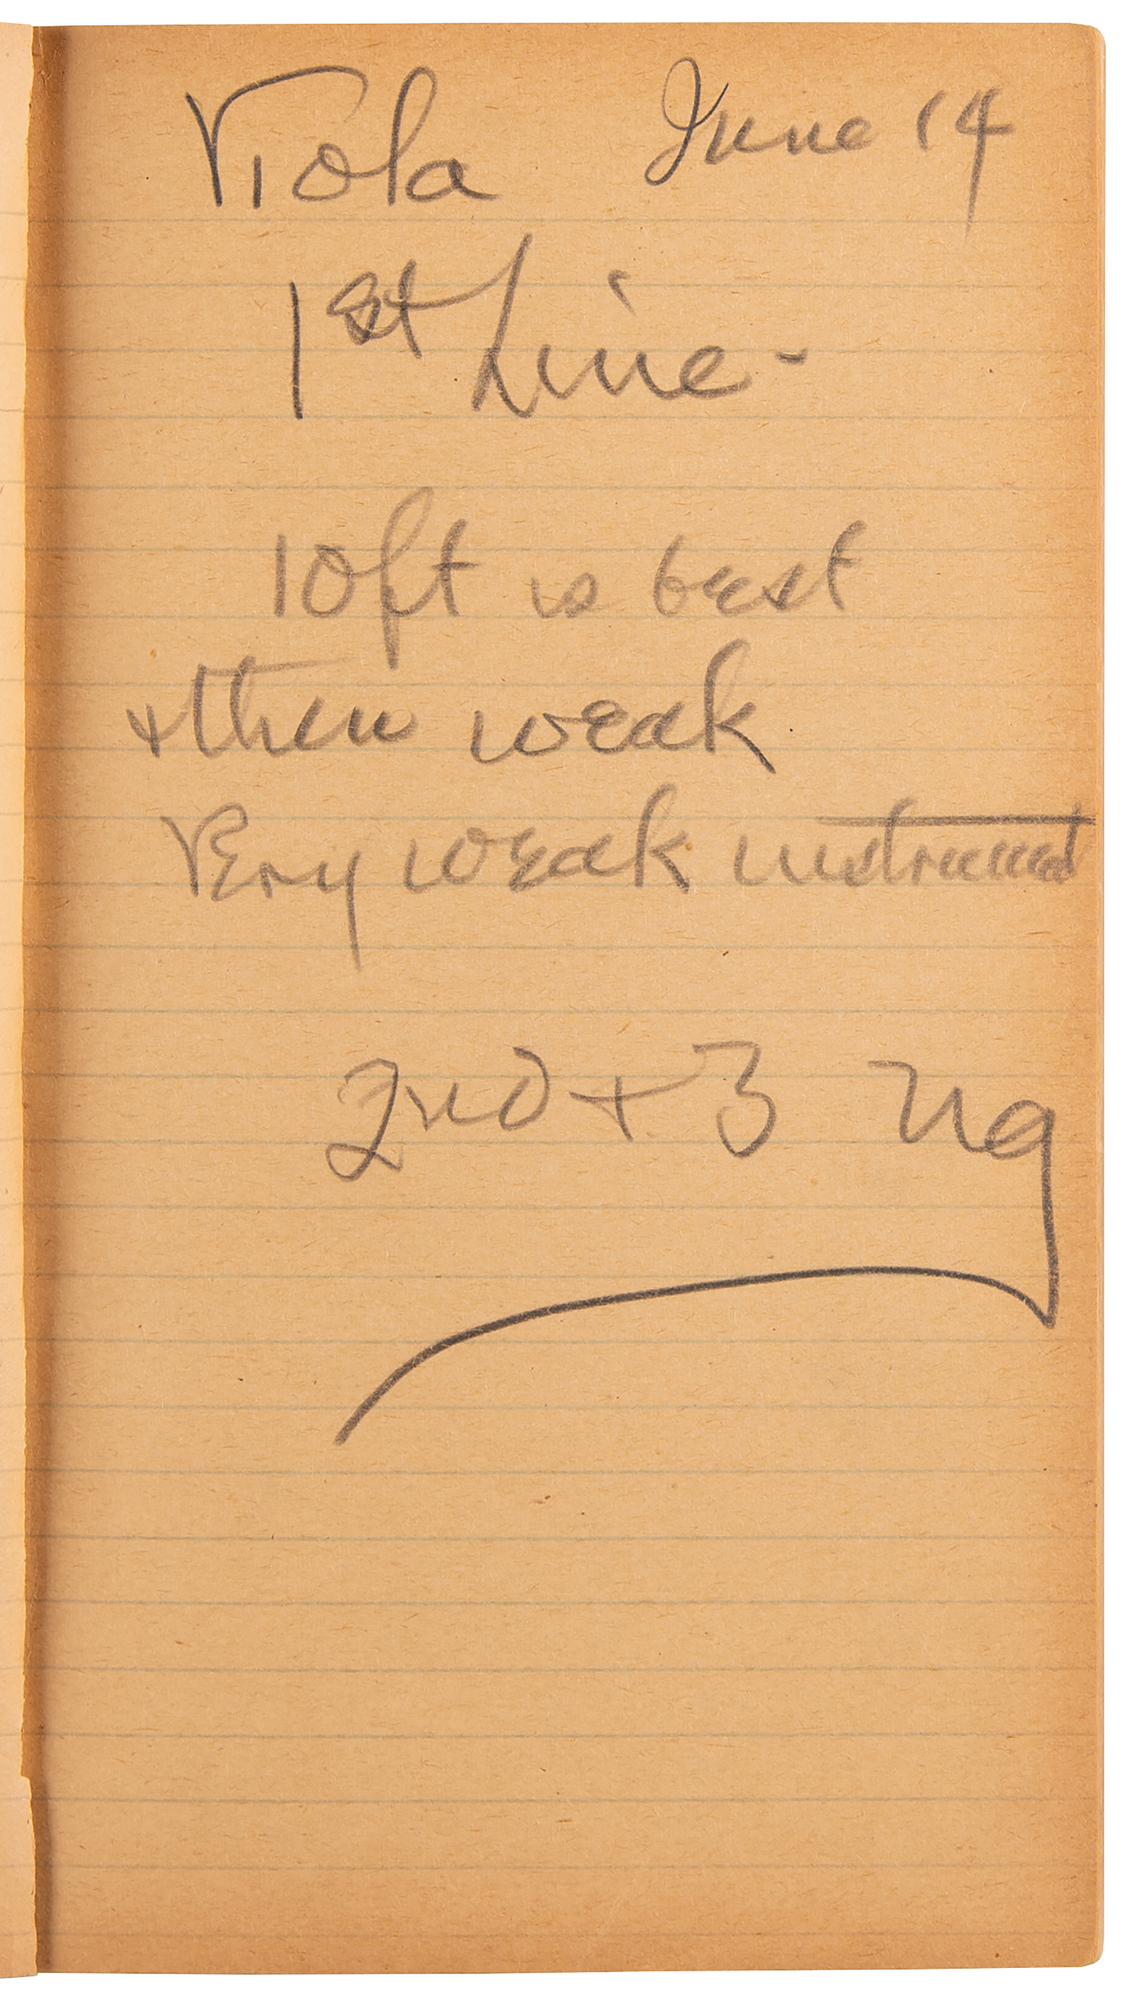 Viola June 14
1st Line -
10ft is best
+ then weak
Very weak instrument
2nd + 3 ng